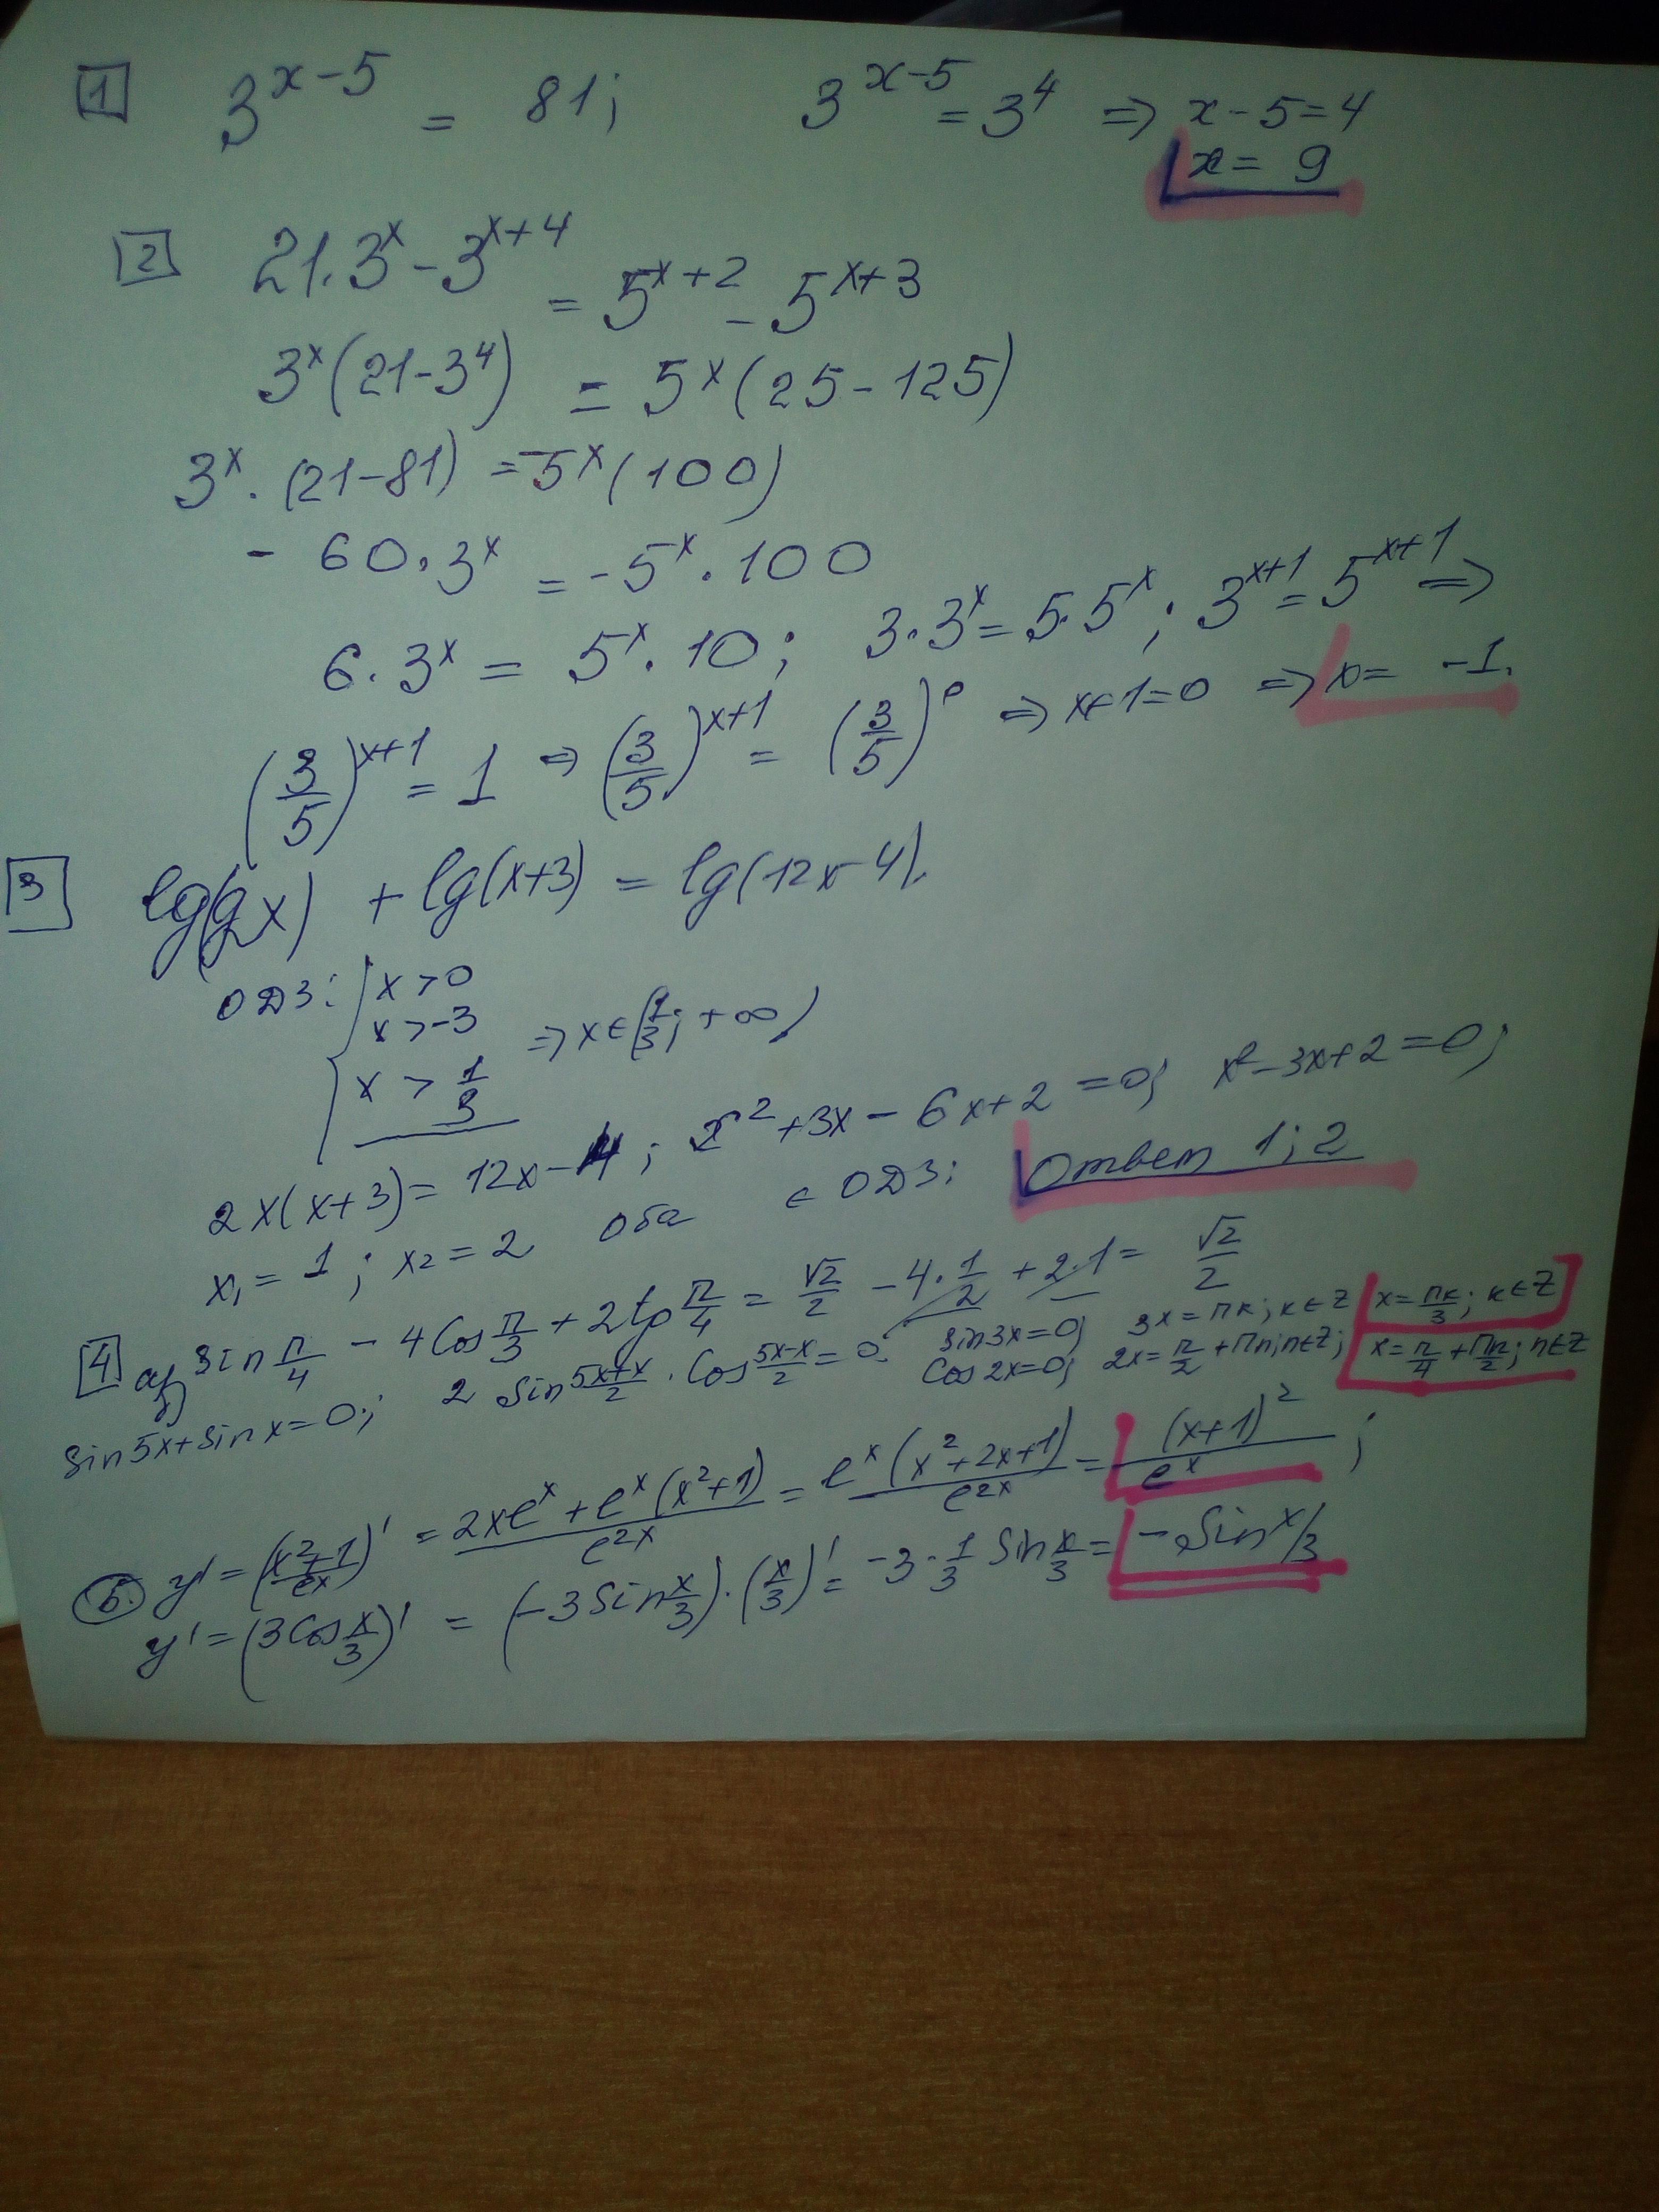 1 3^{x-5} = 81; 3^{x-5} = 3^4 => x-5=4
x = 9
2 21·3^x - 3^{x+4} = 5^{x+2} - 5^{x+3}
3^x(21-3^4) = 5^x(25-125)
3^x·(21-81) = -5^x(100)
-60·3^x = -5^x·100
6·3^x = 5^x·10; 3·3^x = 5·5^x; 3^{x+1} = 5^{x+1} =>
(3/5)^{x+1} = 1 => (3/5)^{x+1} = (3/5)^0 => x+1=0 => x = -1.
3 lg(2x) + lg(x+3) = lg(12x-4).
ОДЗ: { x>0
x>-3
x > 1/3 => x∈(1/3; +∞)
2x(x+3) = 12x-4; x^2+3x-6x+2=0; x^2-3x+2=0;
x₁=1; x₂=2 оба ∈ ОДЗ: Ответ 1; 2
4 а) sin π/4 - 4cos π/3 + 2tg π/4 = √2/2 - 4·1/2 + 2·1 = √2/2
б) sin5x+sinx=0; 2 sin (5x+x)/2 · cos (5x-x)/2 = 0; sin3x=0; 3x=πк; к∈Z x=πк/3; к∈Z
cos2x=0; 2x=π/2+πn; n∈Z; x=π/4+πn/2; n∈Z
5. y' = ((x^2+1)/e^x)' = (2xe^x+e^x(x^2+1))/e^{2x} = e^x(x^2+2x+1)/e^{2x} = (x+1)^2/e^x;
y' = (3cos x/3)' = (-3sin x/3)·(x/3)' = -3·1/3 sin x/3 = -sin x/3